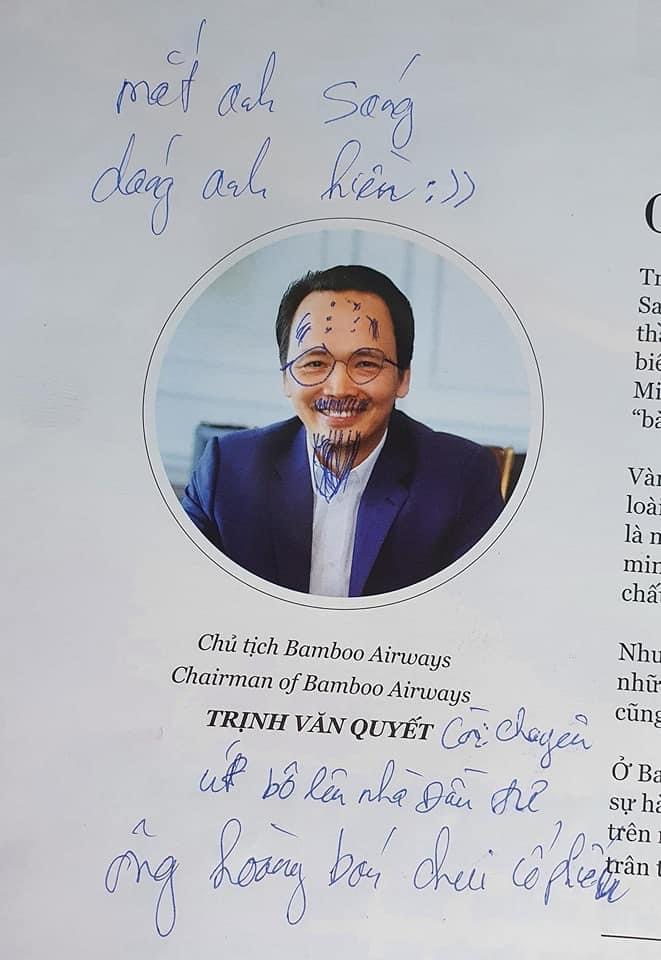 mắt anh sáng
dáng anh hiền :))
Chủ tịch Bamboo Airways
Chairman of Bamboo Airways
TRỊNH VĂN QUYẾT Còi chuyên
úp bô lên nhà đầu tư
ông hoàng bán chui cổ phiếu
Sa
thà
biế
Mi
"bà
Vàn
loài
là n
min
chấ
Như
nhữ
cũng
Ở Ba
sự hà
trên n
trân t